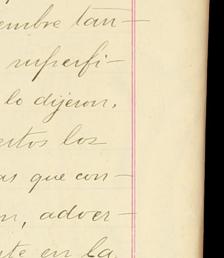 embre tan-
superfi-
lo dijeron,
ertos los
as que con-
n, adver-
te en la